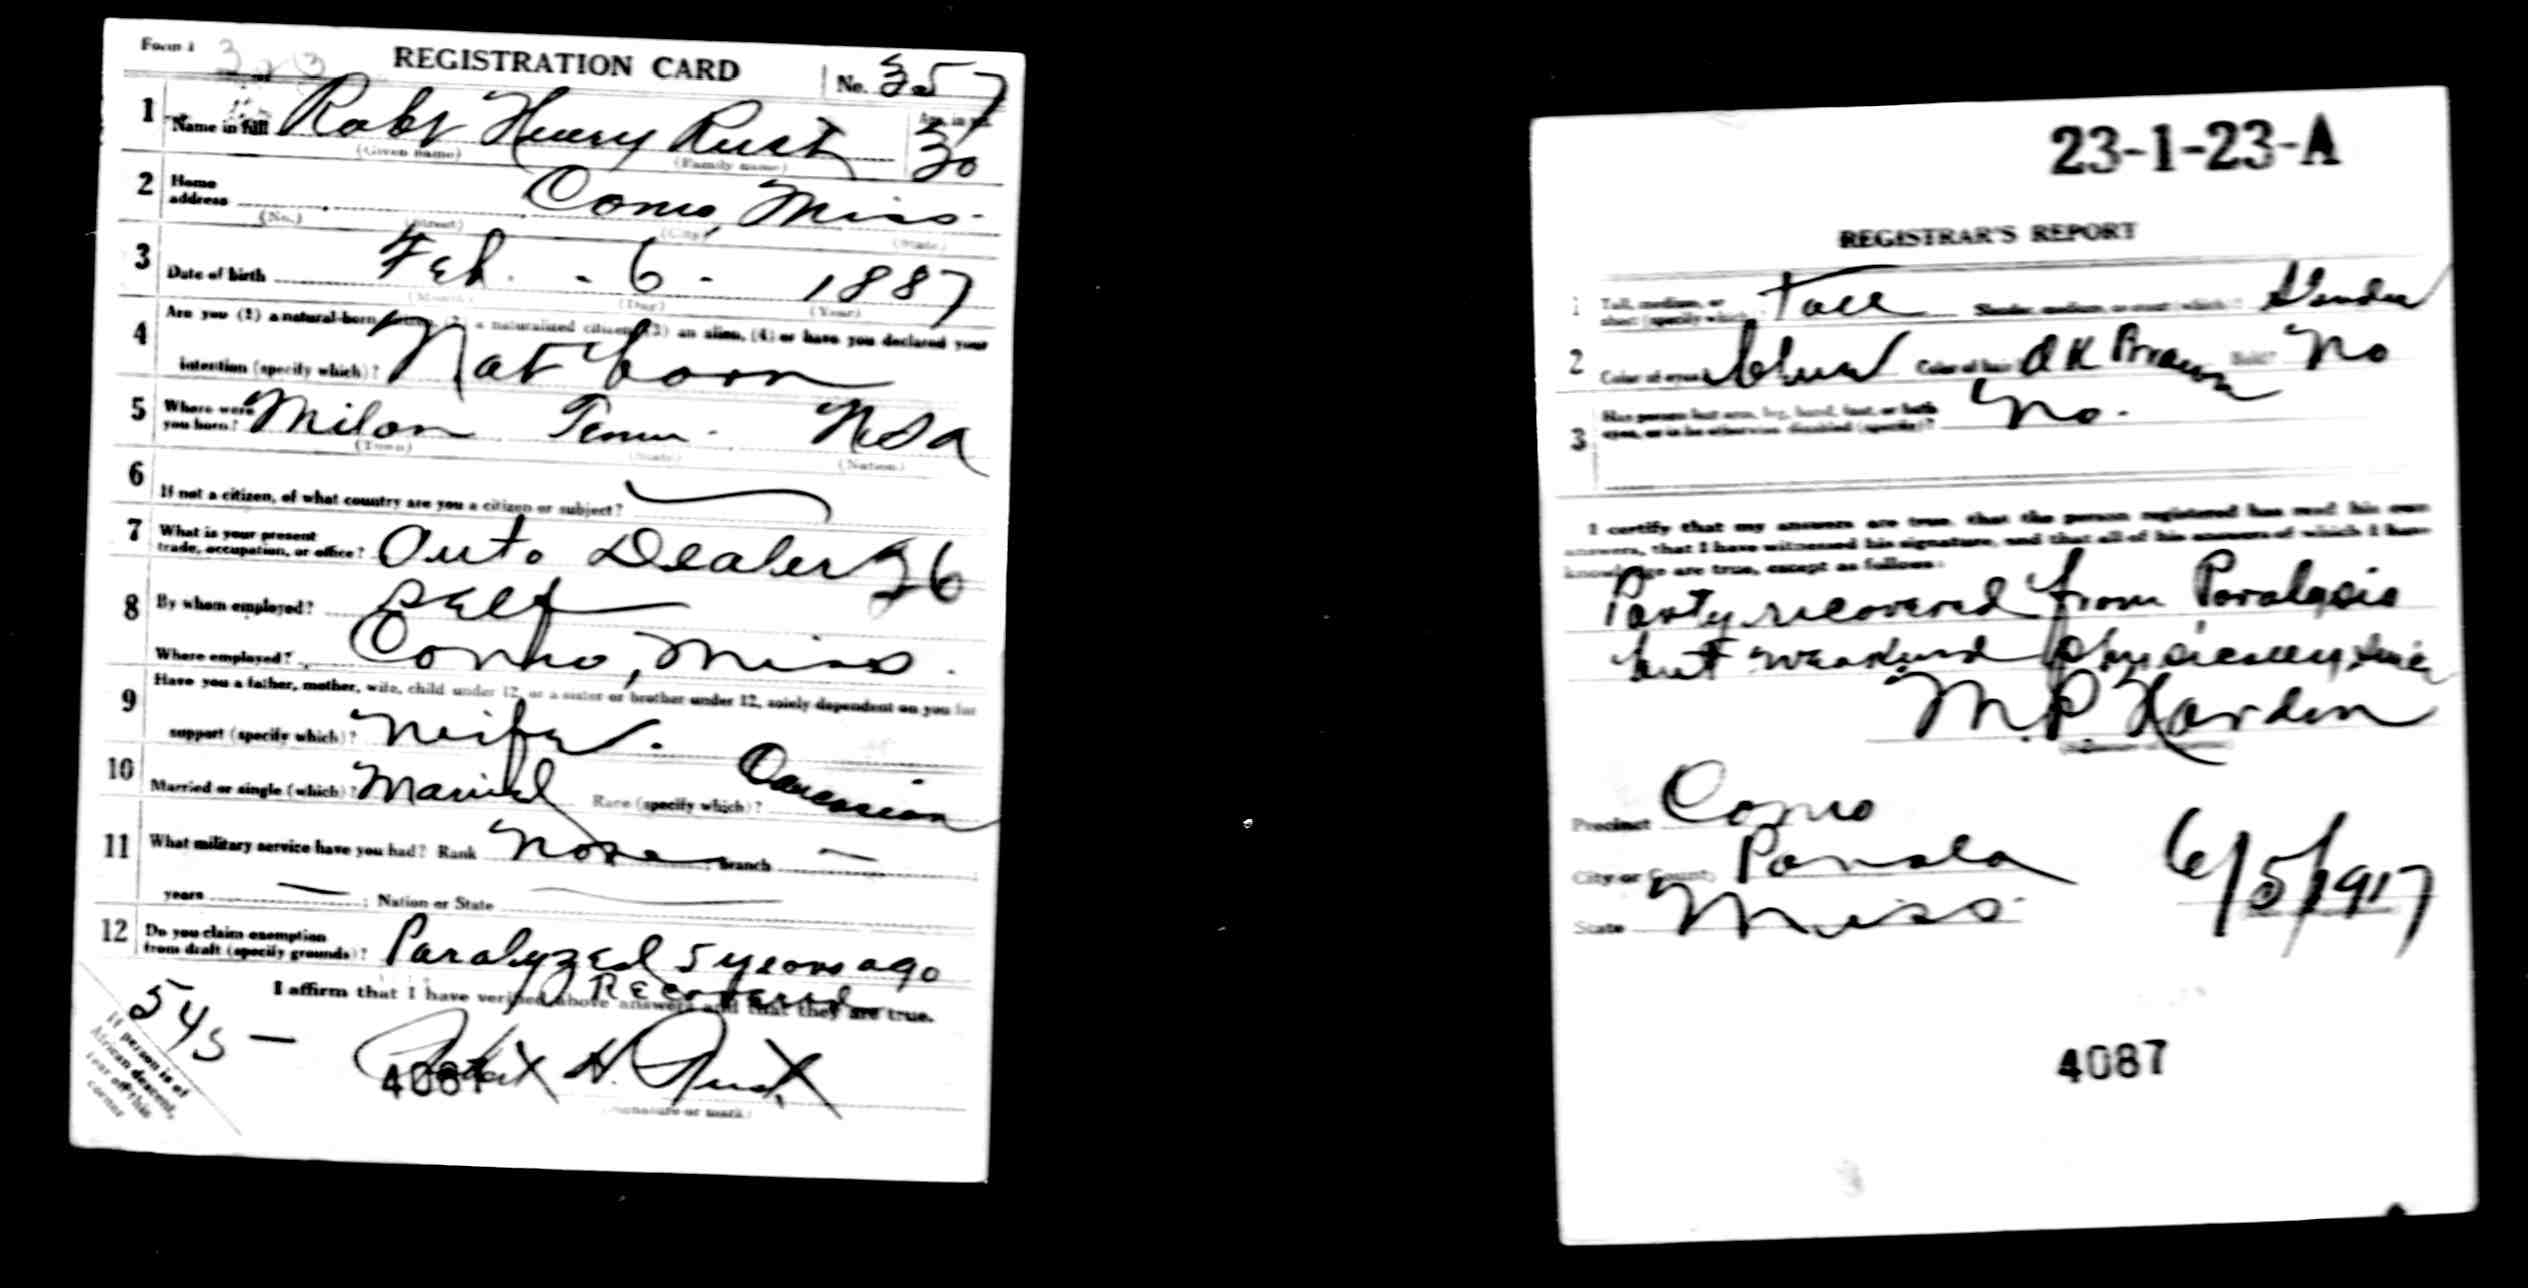 Form 1
REGISTRATION CARD
No. 357
1 Name in full Robt Henry Rust
Age, in yrs. 30
(Given name) (Family name)
2 Home address Como, Miss.
(No.) (Street) (City) (State)
3 Date of birth Feb. - 6 - 1887
(Month) (Day) (Year)
4 Are you (1) a natural-born (2) a naturalized citizen (3) an alien, (4) or have you declared your
intention (specify which)? Nat born
5 Where were you born? Milan Tenn. USA
(Town) (State) (Nation)
6 If not a citizen, of what country are you a citizen or subject?
7 What is your present trade, occupation, or office? Auto Dealer 36
8 By whom employed? Self
Where employed? Como, Miss.
9 Have you a father, mother, wife, child under 12, or a sister or brother under 12, solely dependent on you for
support (specify which)? Wife.
10 Married or single (which)? Married Race (specify which)? Caucasian
11 What military service have you had? Rank None; branch
years ; Nation or State
12 Do you claim exemption from draft (specify grounds)? Paralyzed 5 years ago
Recovered
I affirm that I have verified above answers and that they are true.
Robert H. Rust
4087
(Signature or mark)
If person is of
African descent,
tear off this
corner
23-1-23-A
REGISTRAR'S REPORT
1 Tall, medium, or short (specify which) Tall Slender, medium, or stout (which)? Slender
2 Color of eyes Blue Color of hair Dk Brown Bald? No
3 Has person lost arm, leg, hand, foot, or both
eyes, or is he otherwise disabled (specify)? No.
I certify that my answers are true, that the person registered has read his own
answers, that I have witnessed his signature, and that all of his answers of which I have
knowledge are true, except as follows:
Party recovered from Paralysis
but weakened physically since
M. P. Hardin
(Signature of registrar)
Precinct Como
City or County Panola
State Miss.
6/5/1917
4087